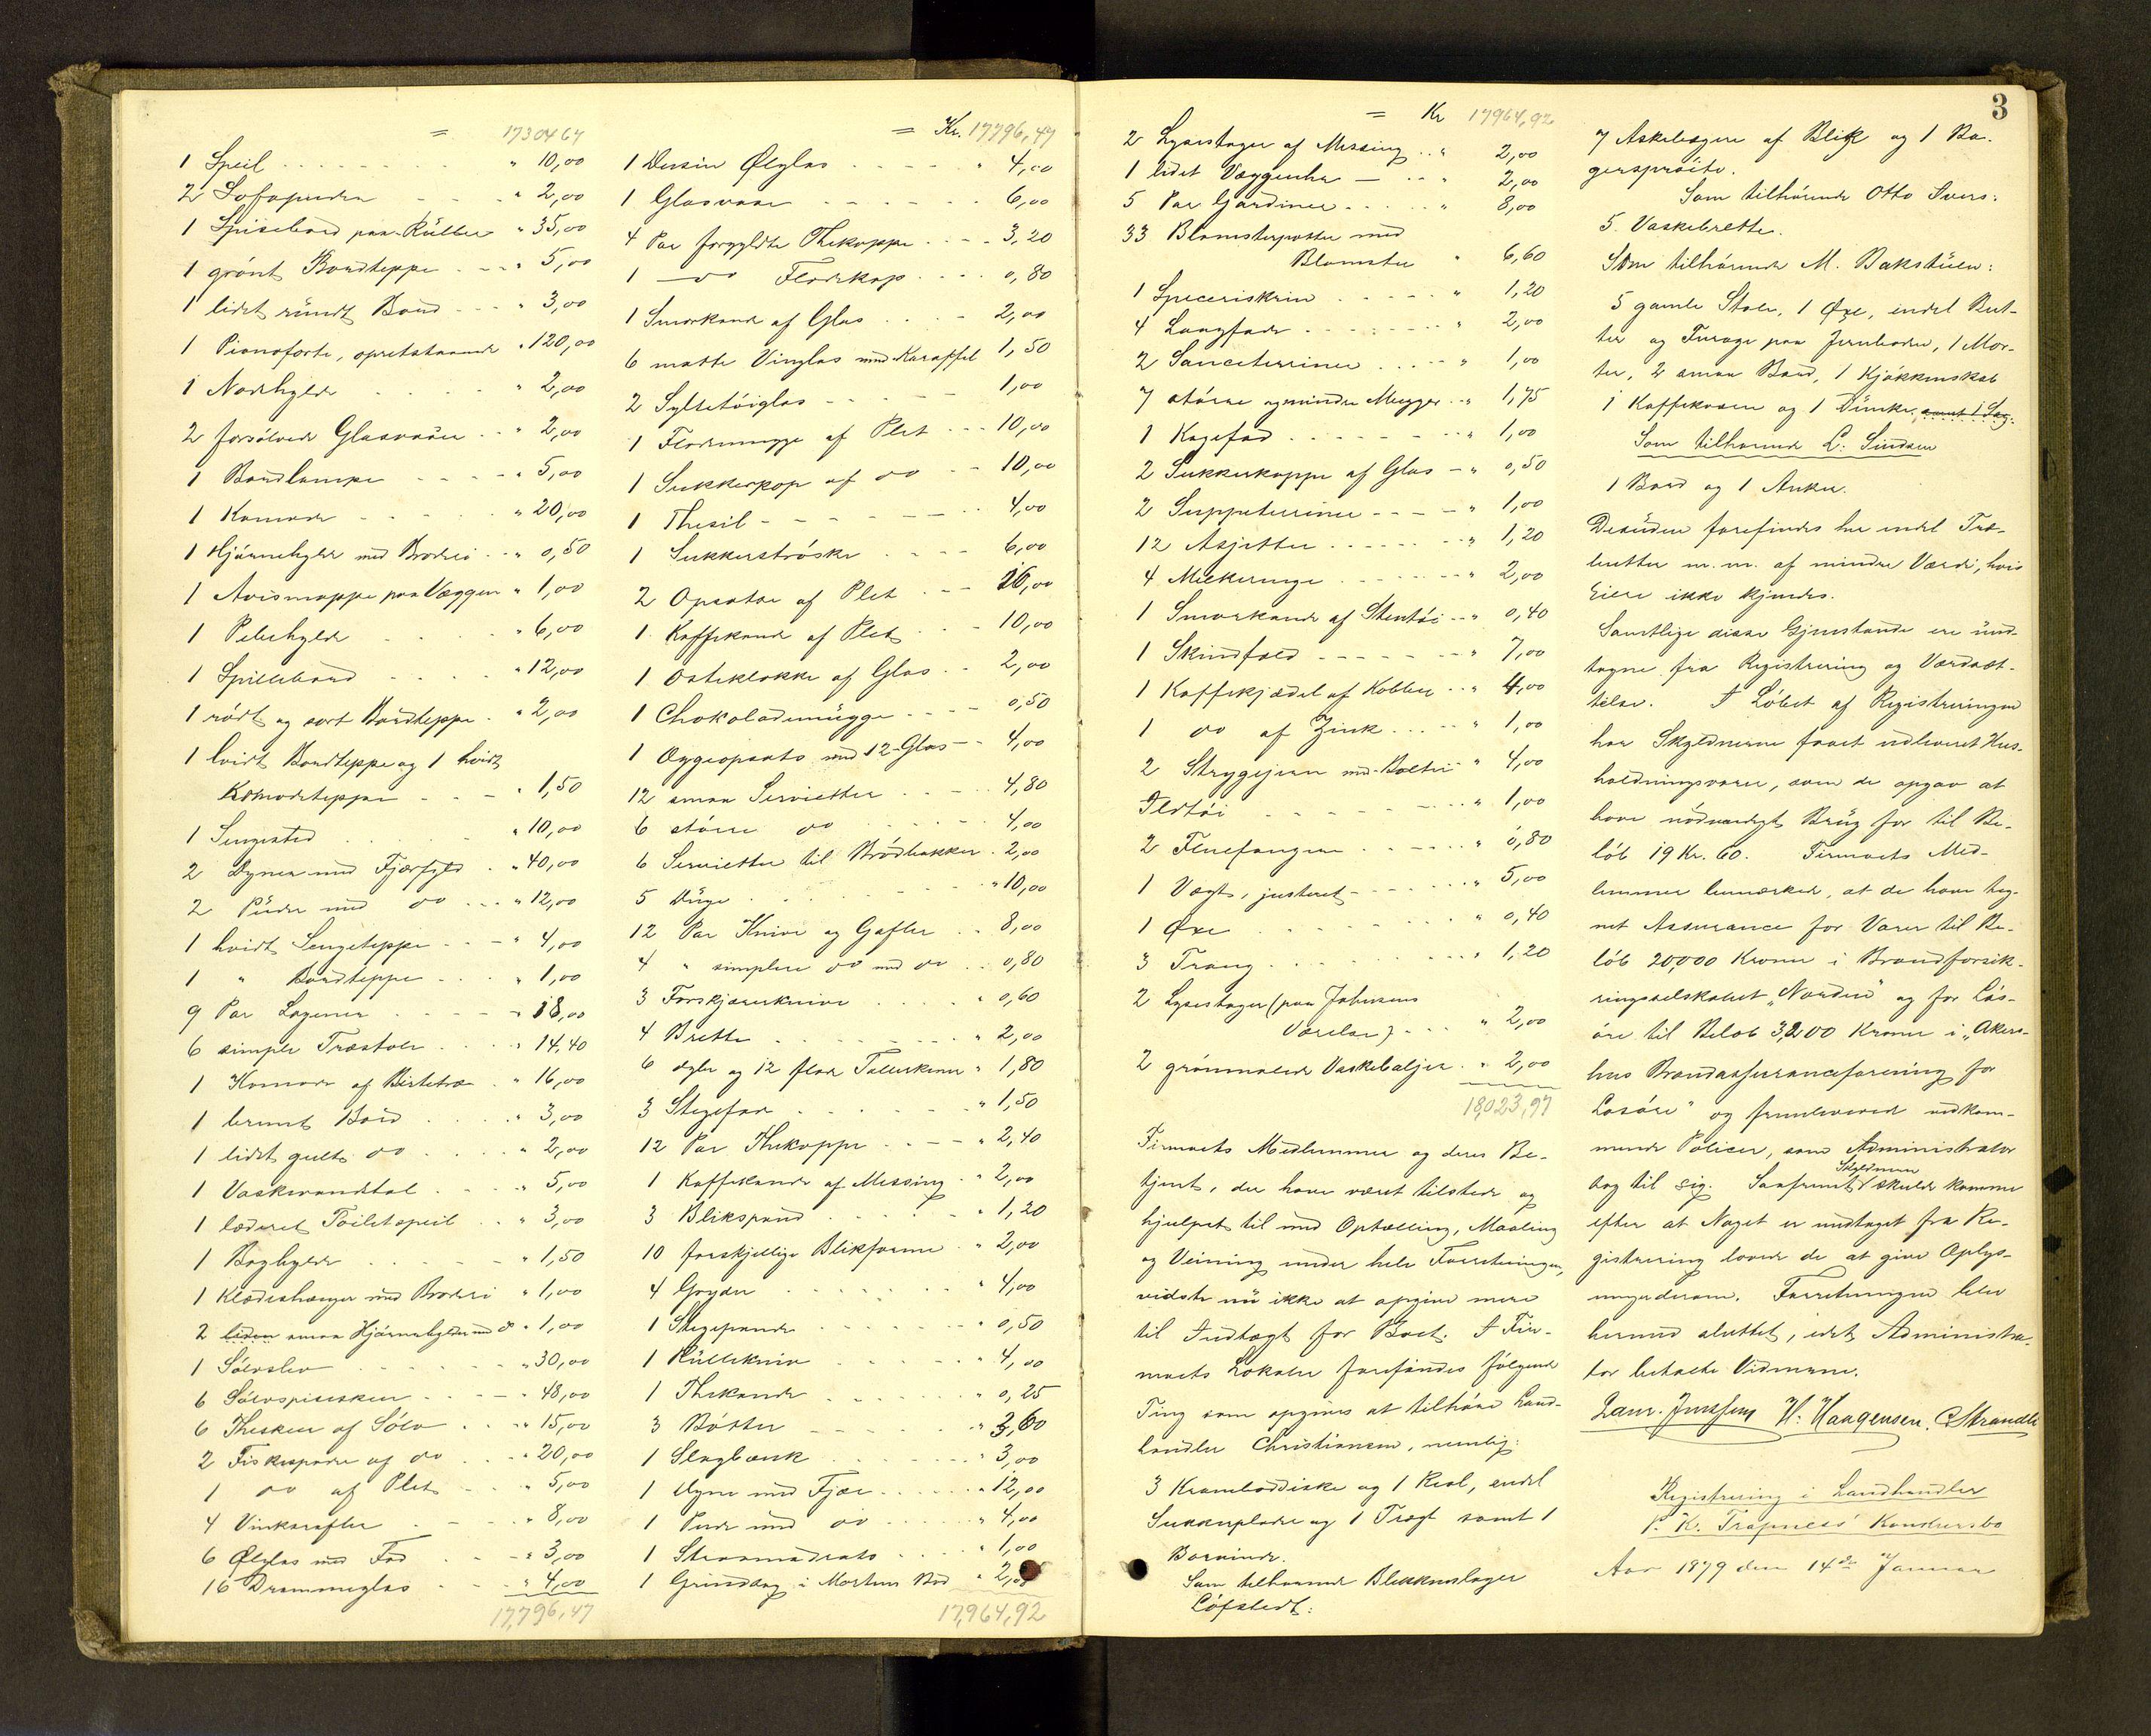 = 17304 67
1 Speil . . . . . . . . " 10,00
2 Sofapuder - - - " 2,00
1 Spisebord paa Ruller " 35,00
1 grønt Bordteppe . - - " 5,00
1 lidet rundt Bord - - - " 3,00
1 Pianoforte, opretstaaende " 120,00
1 Nodehylde . . . " 2,00
2 forsølvede Glasvaser . . " 2,00
1 Bordlampe - - - - " 5,00
1 Komode - - - " 20,00
1 Hjørnehylde med Broderi . . " 0,50
1 Avismappe paa Væggen " 1,00
1 Pibehylde . . . . " 6,00
1 Spillebord - . . . " 12,00
1 rødt og sort Bordteppe . " 2,00
1 hvidt Bordteppe og 1 hvidt
Komodeteppe - - - " 1,50
1 Sengested . . . . " 10,00
2 Dyner med Fjærfyld . " 40,00
2 Puder med do . . . " 12,00
1 hvidt Sengeteppe - - - " 4,00
1 " Bordteppe - . . " 1,00
9 Par Lagener . - - - " 18,00
6 simple Træstole . . . " 14,40
1 Komode af Birketræ . " 16,00
1 brunt Bord . . . " 3,00
1 lidet gult do . . . " 2,00
1 Vaskevandtøl . . . " 5,00
1 læderet Toiletspeil . . " 3,00
1 Boghylde . . . - - " 1,50
1 Klædeshænger med Broderi " 1,00
2 liden smaa Hjørnehylder med d° " 1,00
1 Sølvslev - - - - " 30,00
6 Sølvspiseskeer - - - - " 48,00
6 Theskeer af Sølv . . " 15,00
2 Fiskespader af do . . " 20,00
1 do af Plet - - " 5,00
4 Vinkarafler . - - " 8,00
6 Ølglas med Fod . - - " 3,00
16 Drammeglas - . . " 4,00
17,796,47
= Kr. 17796,47
1 Dusin Ølglas . . . - - " 4,00
1 Glasvase - - - - - - 6,00
4 Par forgyldte Thekopper . . - - 3,20
1 — do Flødekop . . . . 0,80
1 Smørkande af Glas . . . - 2,00
6 matte Vinglas med Karaffel 1,50
2 Syltetøiglas - - - - - 1,00
1 Flødemugge af Plet - - - 10,00
1 Sukkerkop af do - - 10,00
1 Thesil - - - - - — . . 4,00
1 Sukkerstrøske . . - - 6,00
2 Opsatse af Plet . . - - 26,00
1 Kaffekande af Plet . - - 10,00
1 Osteklokke af Glas . - 2,00
1 Chokolademugge . - - - 0,50
1 Æggeopsats med 12 Glas - - 4,00
12 smaa Servietter . . - - 4,80
6 større do . . . . . 4,00
6 Servietter til Brødbakker . 2,00
5 Duge . . . . - - - " 10,00
12 Par Knive og Gafler . . 8,00
4 " simplere do med do . . 0,80
3 Forskjærerknive . . . . " 0,60
4 Brette . . . . - - - - " 2,00
6 dybe og 12 flade Tallerkener " 1,80
3 Stegefade . . . - - - " 1,50
12 Par Thekopper . . - - " 2,40
1 Kaffekande af Messing . " 2,00
3 Blikspand . . . . - - " 1,20
10 forskjellige Blikforme . " 2,00
4 Gryder . . . . . . " 4,00
1 Stegepande - - - - - - " 0,50
1 Rullekniv . . . . . . " 4,00
1 Thekande . . - - - - " 0,25
3 Bøtter - - - - - " 3,60
1 Slagbænk . . . . . " 3,00
1 Dyne med Fjær . . . . . " 12,00
1 Pude med do . . . . " 4,00
1 Straamadrats . . . . " 1,00
1 Grindsag i Mortens Bod " 2,00
17,964,92
3
= Kr 17964,92
2 Lysestager af Messing . . " 2,00
1 lidet Vægguhr — . . " 2,00
5 Par Gardiner . . . . . " 8,00
33 Blomsterpotter med
Blomster " 6,60
1 Speceriskrin . . . - - " 1,20
4 Langfade . . - - . . . " 2,00
2 Sauceterriner . . . - - " 1,00
7 større og mindre Mugger . . " 1,75
1 Kagefad . . . . - - - . . " 1,00
2 Sukkerkopper af Glas - " 0,50
2 Suppeterriner - - - - " 1,00
12 Asjetter . . . . . - - . . " 1,20
4 Melkeringe . . . . - - - " 2,00
1 Smørkande af Stentøi . . " 0,40
1 Skindfæld - - - - - - - " 7,00
1 Kaffekjædel af Kobber . . " 4,00
1 do af Zink . . . - - " 1,00
2 Strygejern med Bolter " 4,00
Ildtøi . . . - - - . . . " 1,00
2 Fluefangere . . - . . . . " 0,80
1 Vægt, justeret - - - . . . " 5,00
1 Øxe . . . - - . . . " 0,40
3 Traug . . . . - - . . . " 1,20
2 Lysestager (paa Johnsens
Værelse) . . . " 2,00
2 grønmalede Vaskebaljer . " 2,00
18,023,97
Firmaets Medlemmer og deres Be-
tjent, der have været tilstede og
hjulpet til med Optælling, Maaling
og Veining under hele Forretningen,
vidste nu ikke at opgive mere
til Indtægt for Boet. I Fir-
maets Lokaler forefandes følgende
Ting som opgives at tilhøre Land-
handler Christiansen, nemlig:
3 Kramboddiske og 1 Reol, endel
Sukkerplader og 1 Tragt samt 1
Borvinde.
Som tilhørende Blikkenslager
Löfstedt:
7 Askebægere af Blik og 1 Ba-
gersprøite.
Som tilhørende Otto Svers:
5 Vaskebrette.
Som tilhørende M. Bakstuen:
5 gamle Stole, 1 Øxe, endel But-
ter og Furage paa Jernboden, 1 Mor-
ter, 2 smaa Bord, 1 Kjøkkenskab
1 Kaffekværn og 1 Dunke, samt 1 Sag.
Som tilhørende L. Sindsen
1 Bord og 1 Anker.
Desuden forefindes her endel Træ-
butter m. m. af mindre Værdi, hvis
Eiere ikke kjendes.
Samtlige disse Gjenstande ere und-
tagne fra Registrering og Værdsæt-
telse. I Løbet af Registreringen
har Skyldnerne faaet udleveret Hus-
holdningsvarer, som de opgav at
have nødvendigt Brug for til Be-
løb 19 Kr. 60. Firmaets Med-
lemmer bemærkede, at de have teg-
net Assurance for Varer til Be-
løb 20,000 Kroner i Brandforsik-
ringsselskabet „Norden" og for Løs-
øre til Beløb 3,200 Kroner i „Akers-
hus Brandassuranceforening for
Løsøre" og fremleverede vedkom-
mende Policer, som Administrator
tog til sig. Saafremt Skyldnerne skulde komme
efter at Noget er undtaget fra Re-
gistrering lovede de at give Oplys-
ninger derom. Forretningen blev
hermed sluttet, idet Administra-
tor betalte Vidnerne.
H. Haagensen. CStrande
Registrering i Landhandler
P. K. Trapness' Konkursbo
Aar 1879 den 14de Januar